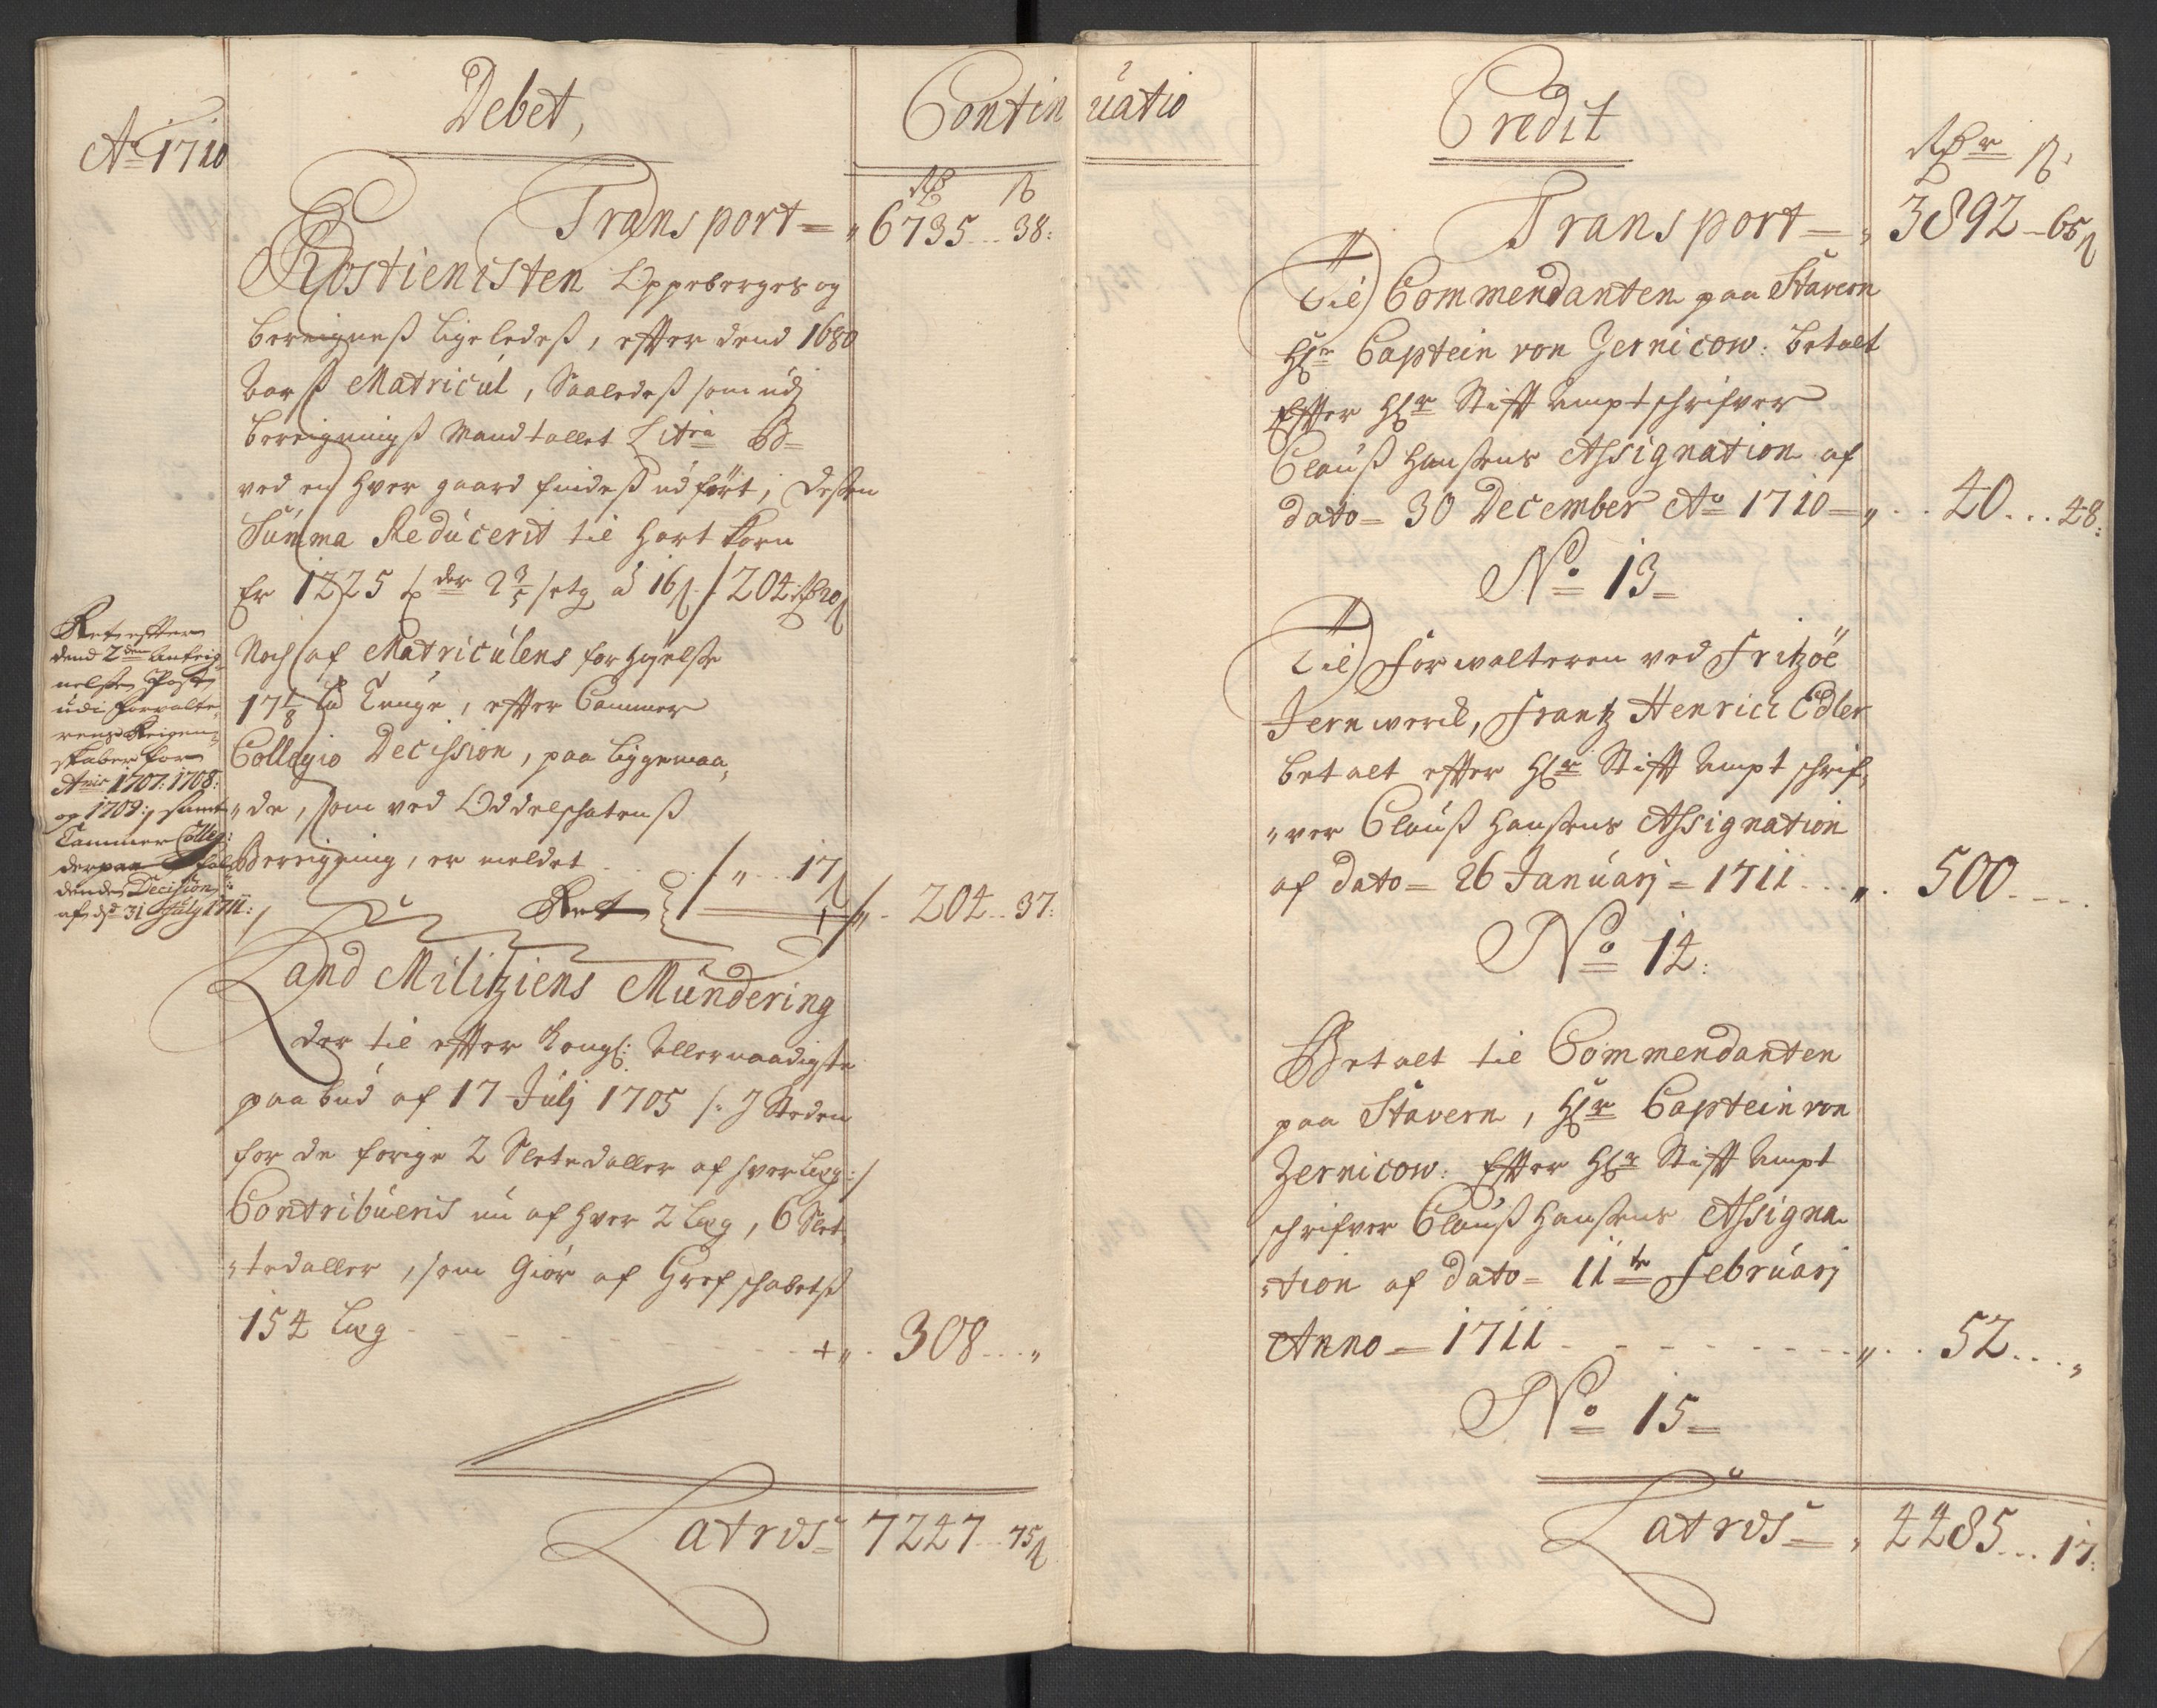 Ao 1710
Debet,
Continuatio
Rdr ß
Transport = 6735 .. 38:
Rostienisten Oppeberges og
bereigneß ligeledeß, effter dend 1680
Aarß Matricul, Saaledeß som udj
bereignings Mandtallet Litra B=
ved en hver gaard findeß udført, deßen
Summa Reducerit til Hart Korn
Er 1225 tder 2 3/5 setg a 16ß / 204 Rd 20ß
Noch af Matriculens forhøyelse
17 1/8 td Tunge, effter Cammer
Collegio Decission, paa liggemaa„
„de, som ved Oddelschatenß
Bereigning, er meldet . . / „ .. 17ß
Ret / „ 204 .. 37:
Ret effter
dend 2den Anteig„
nelses Post
udi forvalte„
rens Reigen„
skaber for
Anis 1707: 1708:
og 1709:, samt
Cammer Colleg:
derpaa fal„
dende Decision
af dd 31 July 1711:
Land Militziens Mundering
der til effter Kongl: Allernaadigste
paabud af 17 Julj 1705 /: J Steden
for de forige 2 Slete daller af hver læg :/
Contribueris nu af hver 2 læg, 6 Slet„
„tedaller, som Giör af Grefschabetß
154 læg - - - - - + „ . 308 ... „
Latris = 7247 .. 75ß
Credit
Rdr ß
Transport = „ 3892 - 65ß
Til Commendanten paa Stavern
Hr Captein von Zernicow: betalt
Effter Hr Stifft Ampt schrifver
Clauß Hanßens Assignation af
dato = 30 December Ao 1710 = „ .. 40 ... 48:
No 13=
Til Forwalteren ved Fritzöe
Jernwerck, Frantz Henrich Edler
betalt effter Hr Stifft Ampt schrif„
„ver Clauß Hanßens Assignation
af dato = 26 Januarj = 1711 ... „ . 500 - - - .
No 14:
Betalt til Commendanten
paa Stavern, Hr Captein von
Zernicow: Effter Hr Stifft Ampt
schrifver Clauß Hanßens Assigna„
„tion af dato = 11te Februarj
Anno = 1711 - - - - - - - „ . . 52 ... „
No 15=
Latris = „ 4485 ... 17: